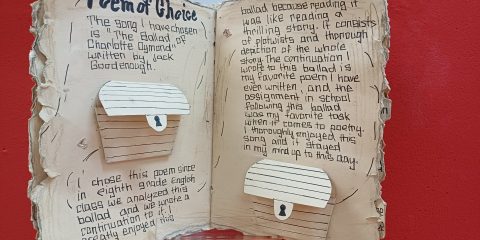 Poem of Choice
The song I have chosen
is "The Ballad of
Charlotte Dymond"
written by Jack
Goodenough.
I chose this poem since
in eighth grade English
class we analyzed this
ballad and we wrote a
continuation to it. I
greatly enjoyed this
ballad because reading it
was like reading a
thrilling story. It consists
of plotwists and thorough
depiction of the whole
story. The continuation I
wrote to this ballad is
my favorite poem I have
ever written, and the
assignment in school
following this ballad
was my favorite task
when it comes to poetry.
I thoroughly enjoyed this
song and it stayed
in my mind up to this day.